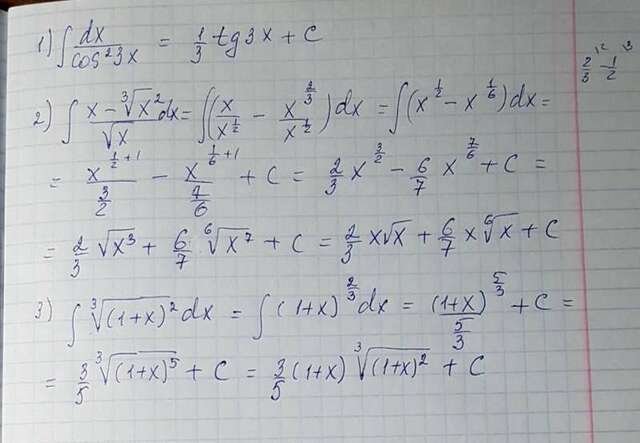 1) ∫ dx/cos²3x = 1/3 tg 3x + C
2/3 - 1/2
2) ∫ (x - ∛x²)/√x dx = ∫(x/x^(1/2) - x^(2/3)/x^(1/2)) dx = ∫(x^(1/2) - x^(1/6)) dx =
= x^(1/2+1)/(3/2) - x^(1/6+1)/(7/6) + C = 2/3 x^(3/2) - 6/7 x^(7/6) + C =
= 2/3 √x³ + 6/7 ⁶√x⁷ + C = 2/3 x√x + 6/7 x ⁶√x + C
3) ∫ ∛(1+x)² dx = ∫ (1+x)^(2/3) dx = (1+x)^(5/3)/(5/3) + C =
= 3/5 ∛(1+x)⁵ + C = 3/5 (1+x) ∛(1+x)² + C